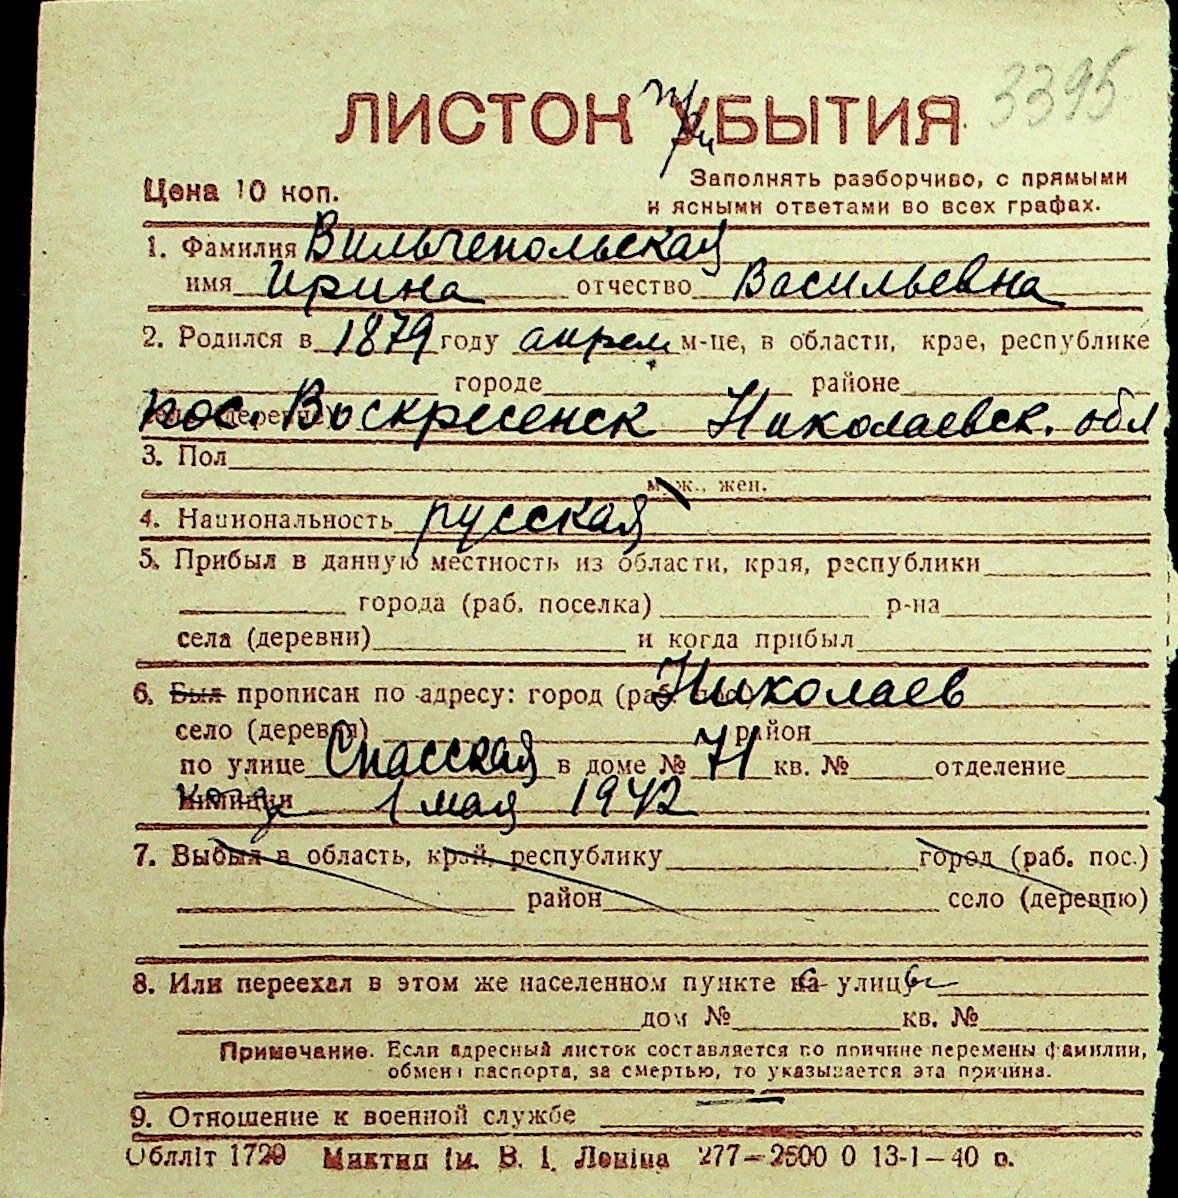 3395
ЛИСТОК приБЫТИЯ
Цена 10 коп.
Заполнять разборчиво, с прямыми
и ясными ответами во всех графах.
1. Фамилия Вильчепольская
имя Ирина отчество Васильевна
2. Родился в 1879 году апрел м-це, в области, крае, республике
городе районе
пос. Воскресенск Николаевск. обл
3. Пол
муж., жен.
4. Национальность русская
5. Прибыл в данную местность из области, края, республики
города (раб. поселка) р-на
села (деревни) и когда прибыл
6. Был прописан по адресу: город (раб. пос.) Николаев
село (деревня) район
по улице Спасская в доме № 71 кв. № отделение
1 мая 1942
7. Выбыл в область, край, республику город (раб. пос.)
район село (деревню)
8. Или переехал в этом же населенном пункте с улицы
дом № кв. №
Примечание. Если адресный листок составляется по причине перемены фамилии,
обмена паспорта, за смертью, то указывается эта причина.
9. Отношение к военной службе
Обллiт 1729 Миктип iм. В. I. Ленiна 277—2500 0 13-1—40 р.